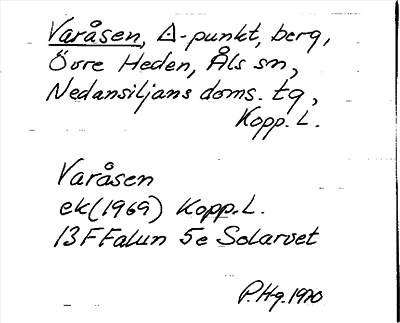 Varåsen, Δ-punkt, berg,
Övre Heden, Åls sn,
Nedansiljans doms. tg,
Kopp. L.
Varåsen
ek(1969) Kopp. L.
13F Falun 5e Solarvet
P.Hg.1970